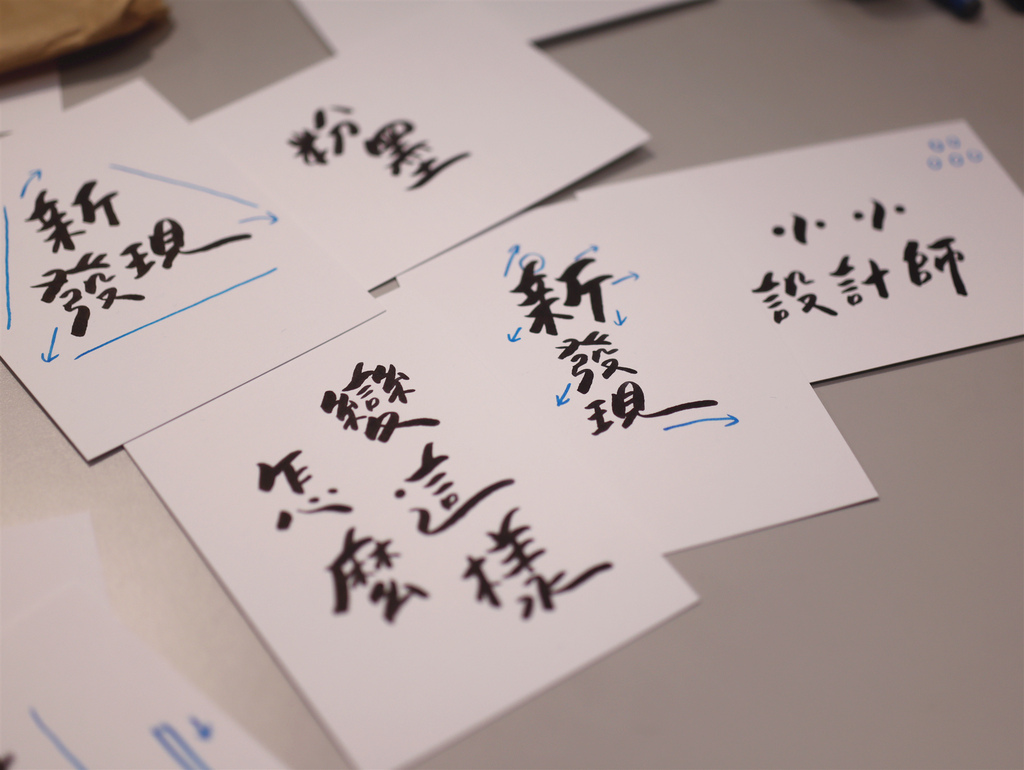 粉墨
新
發現
小小
設計師
新
發
現
變
怎 這
麼 樣